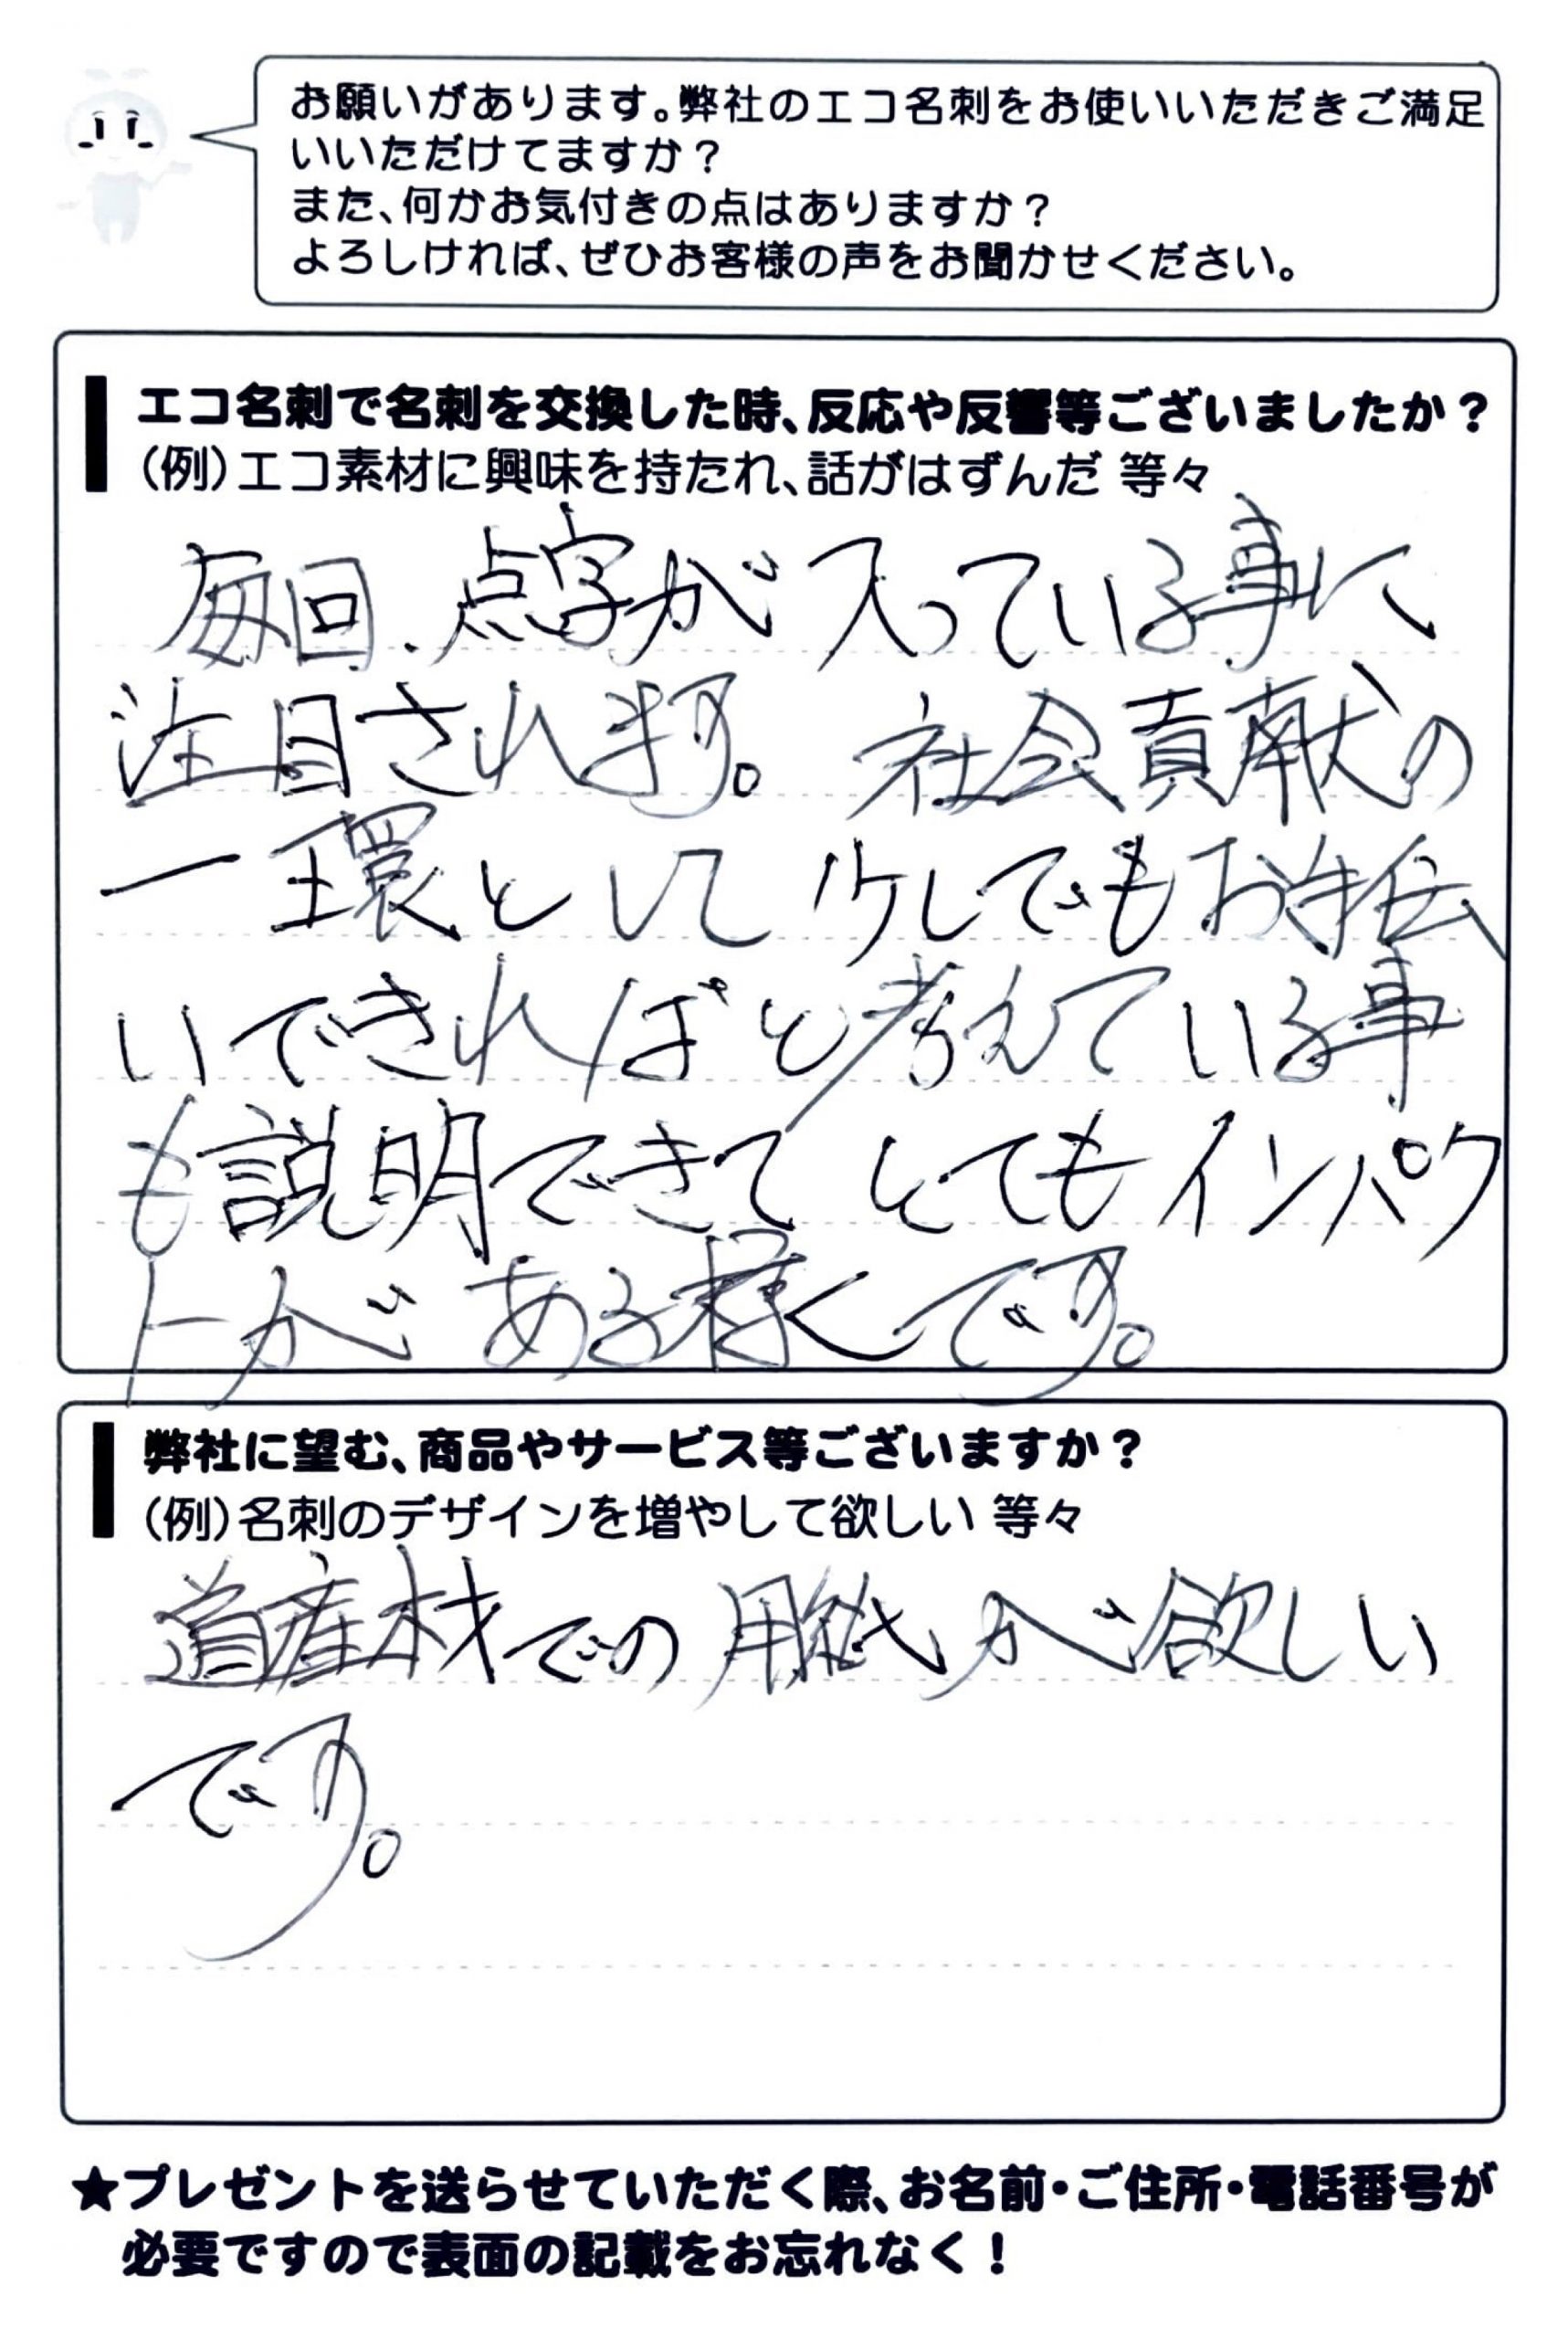 お願いがあります。弊社のエコ名刺をお使いいただきご満足
いいただけてますか？
また、何かお気付きの点はありますか？
よろしければ、ぜひお客様の声をお聞かせください。
エコ名刺で名刺を交換した時、反応や反響等ございましたか？
（例）エコ素材に興味を持たれ、話がはずんだ 等々
毎回、点字が入っている事に
注目されます。 社会貢献の
一環として 少しでもお手伝
いできればと考えている事
も説明できて とてもインパク
トがある様くです。
弊社に望む、商品やサービス等ございますか？
（例）名刺のデザインを増やして欲しい 等々
道産材での用紙が欲しい
です。
★プレゼントを送らせていただく際、お名前・ご住所・電話番号が
必要ですので表面の記載をお忘れなく！